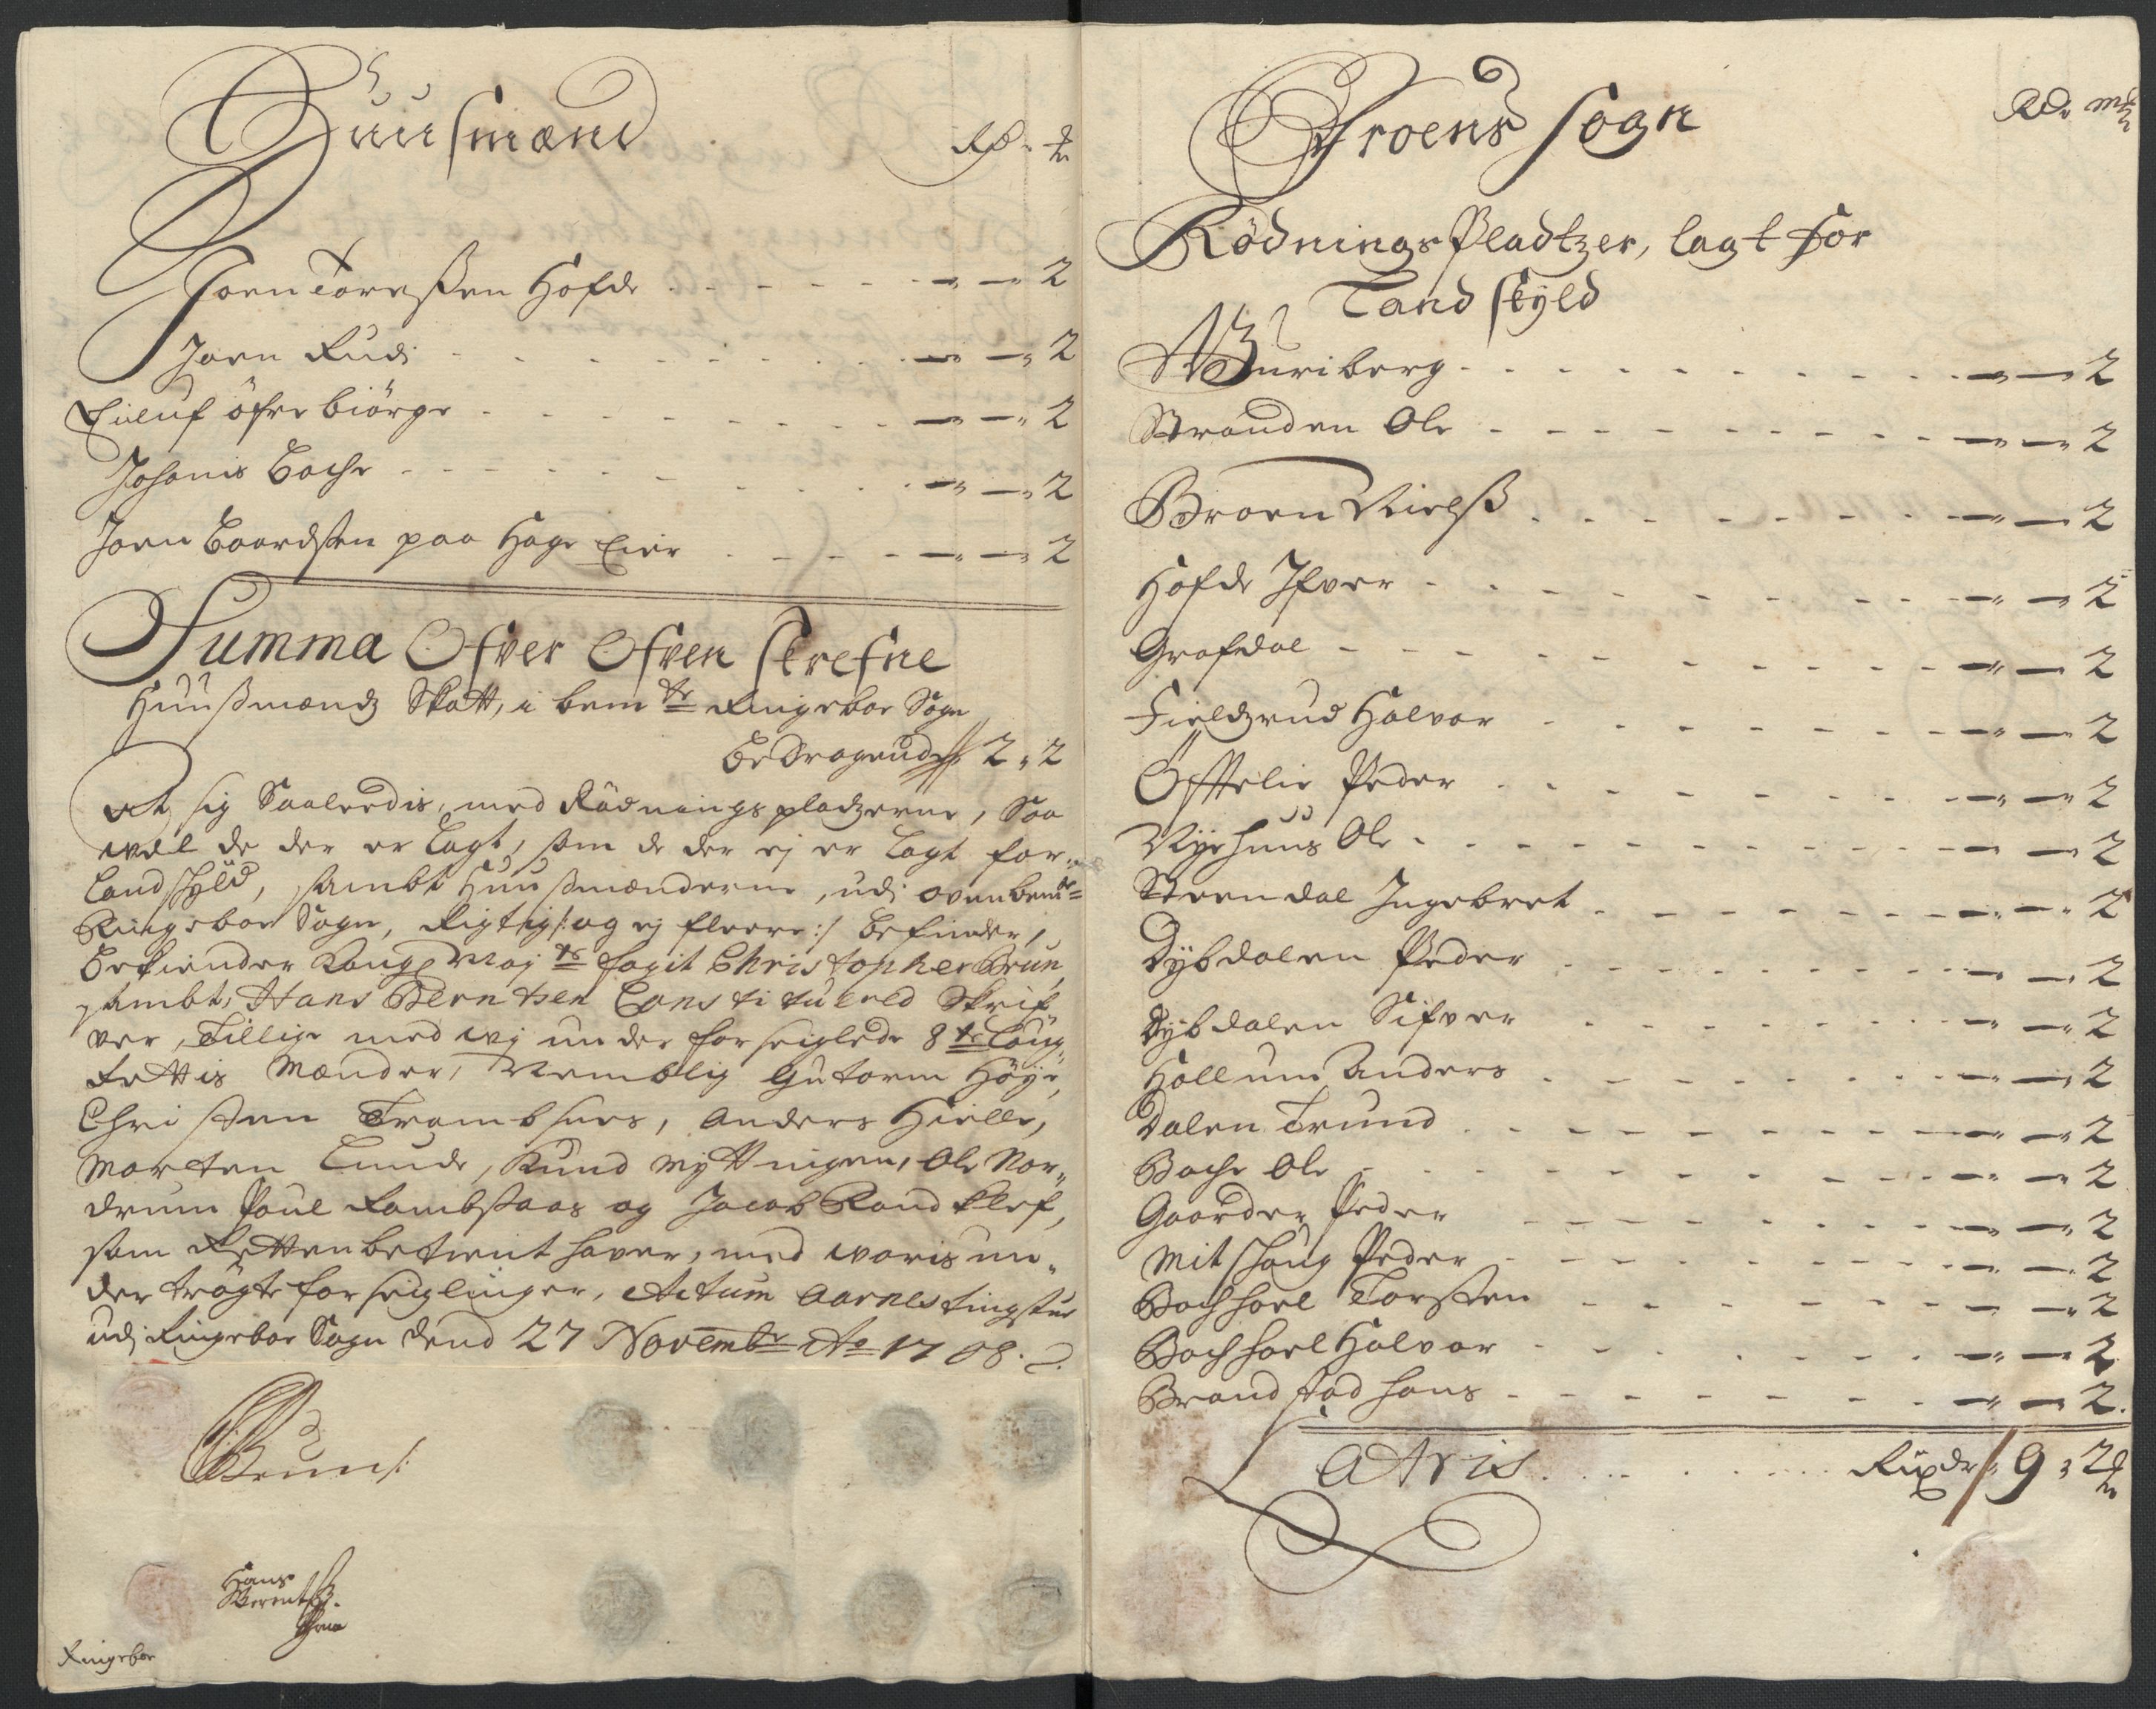 Huusmænd
Rd - ₻
Joen Torenßen Hofde - - - - - 2
Joen Rudi - - - - - 2
Eiluf öfre biörge - - - - - 2
Johanis Bache - - - - - 2
Joen Baardsen paa Hage Eier - - - - - 2
Summa Ofver Ofven skrefne
Huußmændz Skatt, i bemte Ringeboe Sogn
Bedragende 2 " 2
at sig Saaleedis, med Rödningspladzerne, Saa
well de der er lagt, som de der ej er lagt for
Landschyld, sambt Huußmænderne, udj ovenbemte
Ringeboe Sogn, Rigtig /: og ej fleere :/ befindes,
bekiender Kong Mayts fogit Christopher Brun,
sambt, Hans Berntsen Constituered Skrif-
ver, Tillige med wj under forseiglede 8te Laug-
Rettis Mænder, Nemblig Gutorm Höye,
Christen Trombsnes, Anders Hielle,
Morten Lunde, Knud Myttingen, Ole Nor-
drum Poul Rambstaas og Jacob Randklef,
som Retten betient haver, med woris un-
der trögte forseiglinger, Actum Aarnes tingstue
udj Ringeboe Sogn dend 27 Novembr Ao 1708.
CBrun
Hans
Berentß.
Ringeboe
Froens Sogn
Rdr mk
Rödnings Pladtzer, lagt for
Landskyld
Buriberg - - - - - 2
Stranden Ole - - - - - 2
Broen Nielß - - - - - 2
Hofde Ifver - - - - - 2
Grafdal - - - - - 2
Fieldzrud Halvor - - - - - 2
Öfstelie Peder - - - - - 2
Nyehuus Ole - - - - - 2
Steendal Ingebret - - - - - 2
Dybdalen Peder - - - - - 2
Dybdalen Sifver - - - - - 2
Hollum Anders - - - - - 2
Dalen Trund - - - - - 2
Bache Ole - - - - - 2
Gaarder Peder - - - - - 2
Mitshaug Peder - - - - - 2
Bochhoel Torsten - - - - - 2
Bochhoel Halvor - - - - - 2
Brandstad Hans - - - - - 2
Atris . . . . . Rixdr 9 " 2